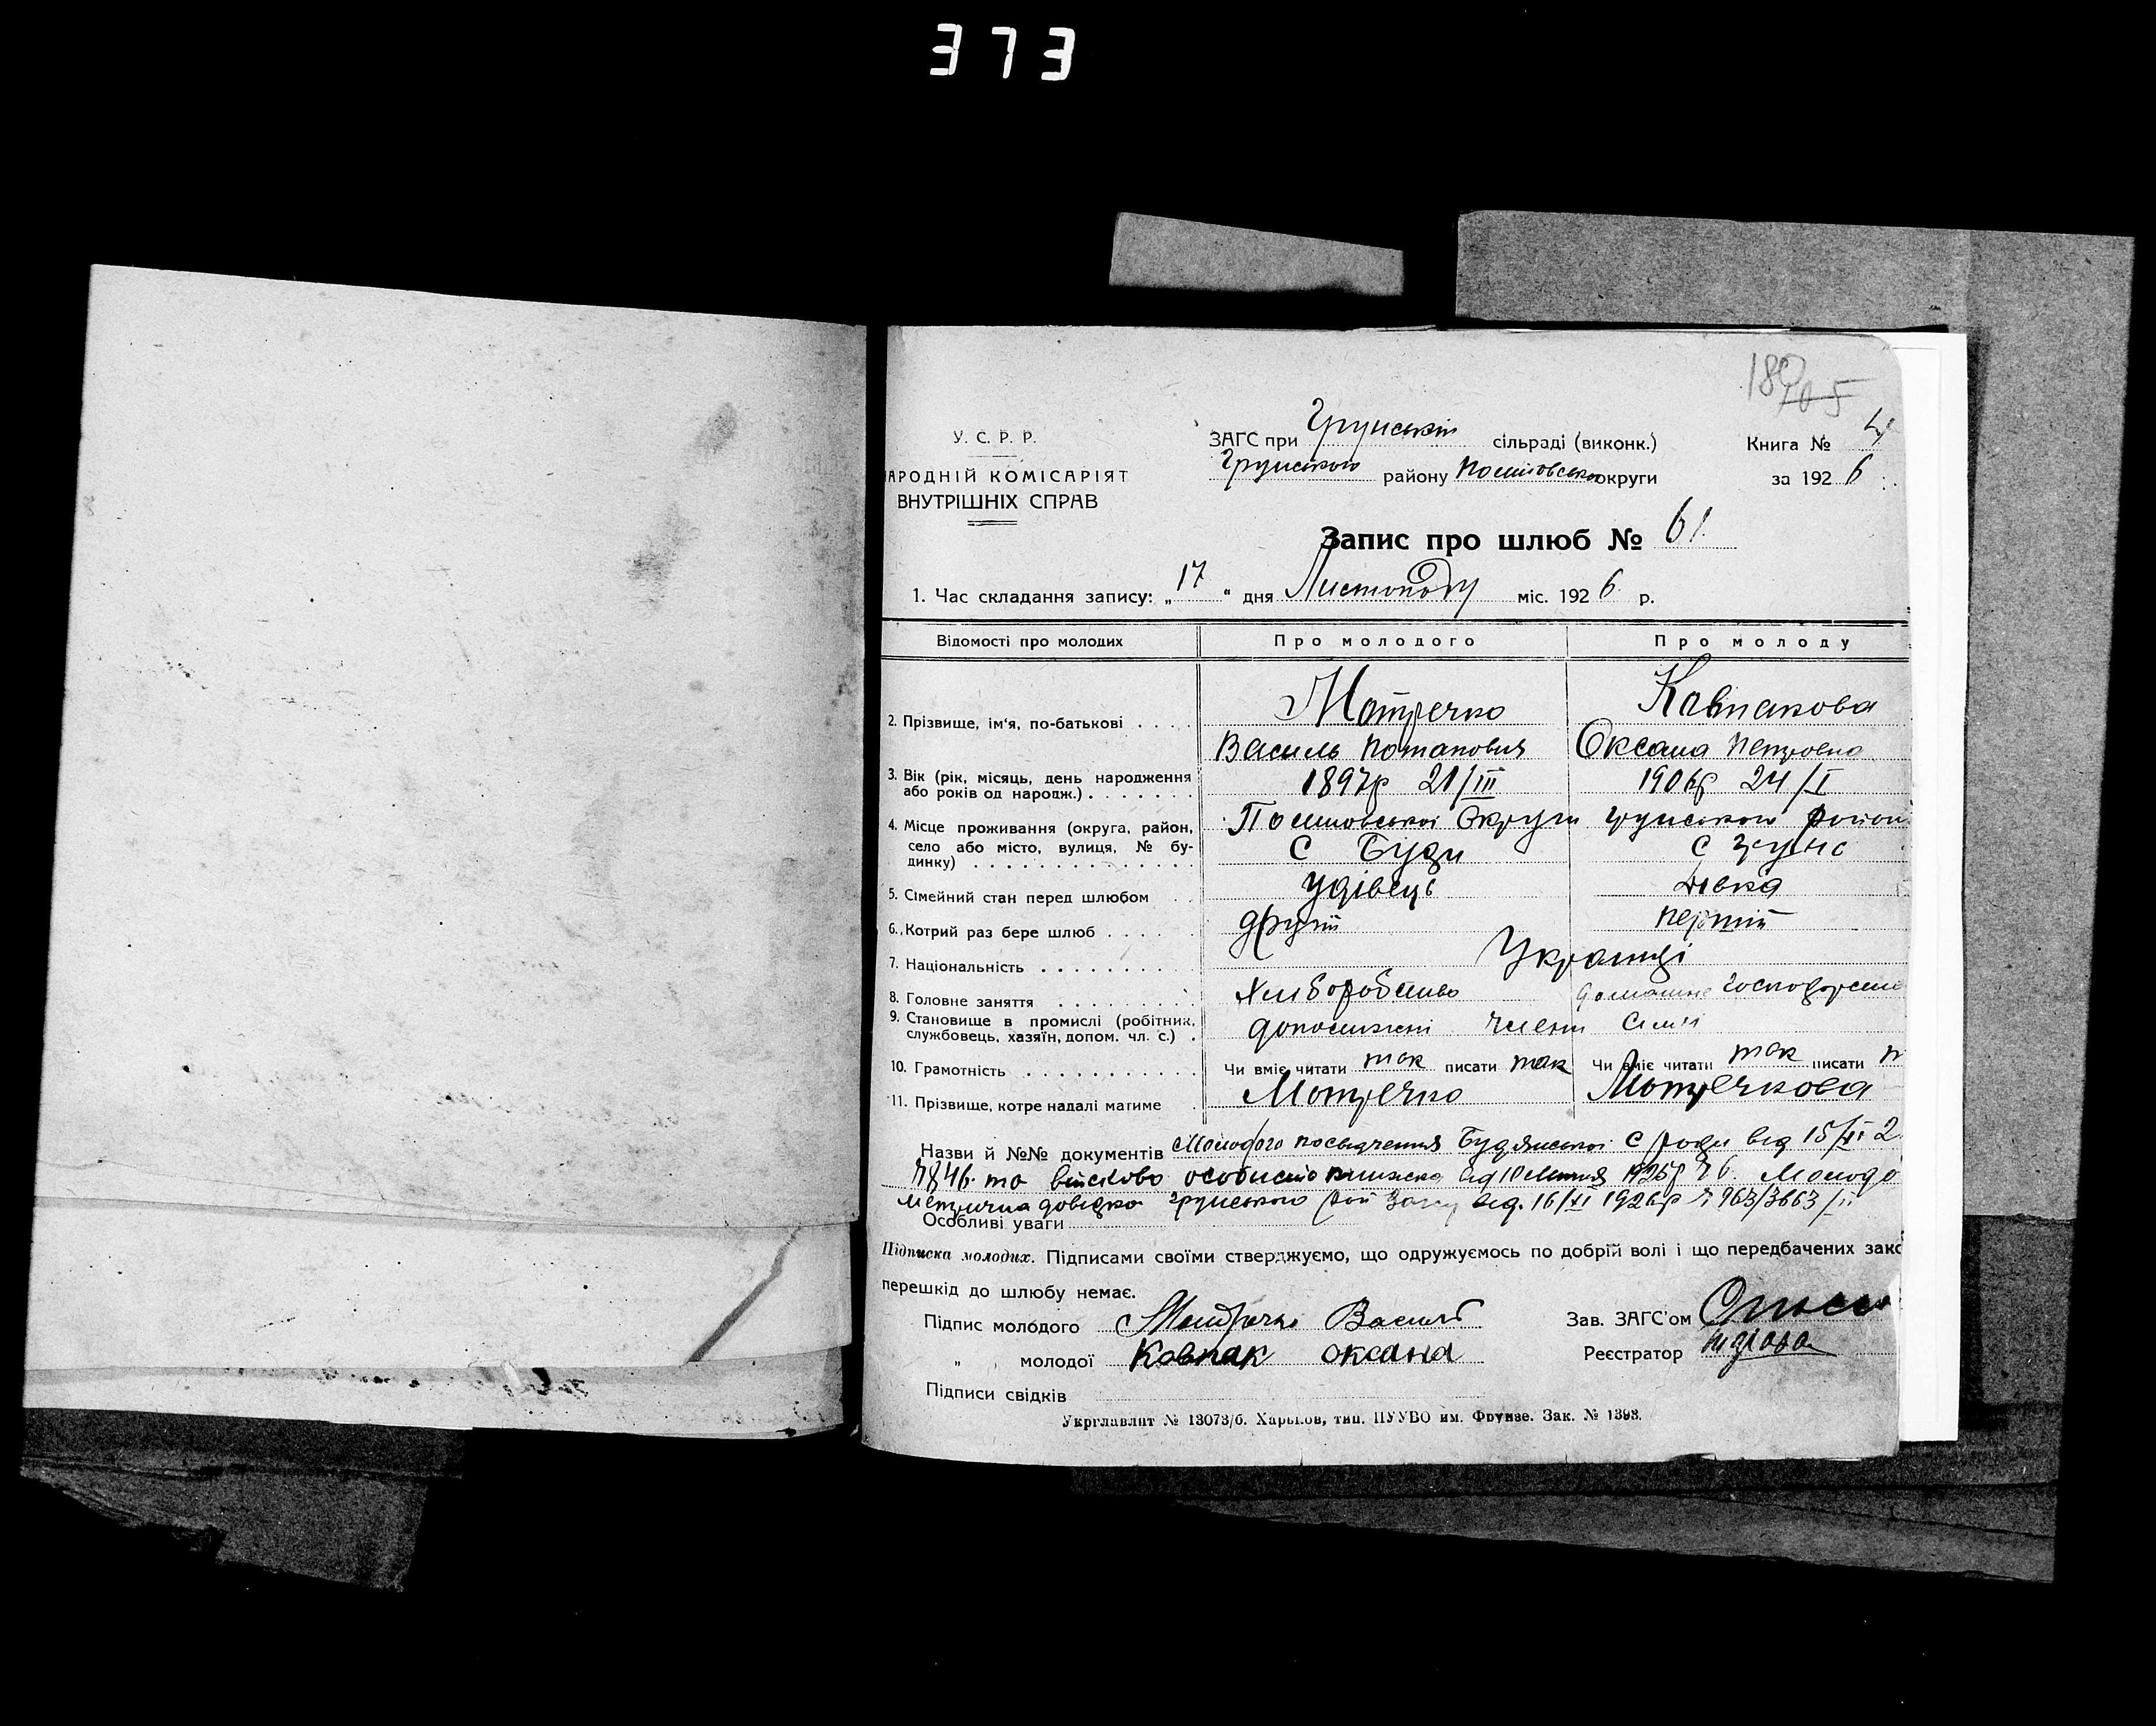 373
180
105
У. С. Р. Р.
НАРОДНІЙ КОМІСАРІЯТ
ВНУТРІШНІХ СПРАВ
ЗАГС при Грунській сільраді (виконк.)
Грунського району Полтовської округи
Книга № 4
за 1926
Запис про шлюб № 61.
1. Час складання запису: „17“ дня Листопаду міс. 1926 р.
Відомості про молодих Про молодого Про молоду
2. Прізвище, ім'я, по-батькові . . . . Мотречко Кавпакова
Василь Потапович Оксана Петровна
3. Вік (рік, місяць, день народження 1897р 21/III 1906р 24/I
або років од народж.) . . . . . . .
4. Місце проживання (округа, район, Полтовської Округи Грунського район
село або місто, вулиця, № бу- с Буди с Грунь
динку) . . . . . . . . . . . . .
5. Сімейний стан перед шлюбом . . удівець дівка
6. Котрий раз бере шлюб . . . . . другий перший
7. Національність . . . . . . . . . Українці
8. Головне заняття . . . . . . . . . Хліборобство домашнє господарство
9. Становище в промислі (робітник, допоміжні члени сем'і
службовець, хазяїн, допом. чл. с.) .
10. Грамотність . . . . . . . . . . . Чи вміє читати так писати так Чи вміє читати так писати т
11. Прізвище, котре надалі матиме . Мотречко Мотречкова
Назви й №№ документів Молодого посвідчення Будянської с/ради від 15/XI 2
846 та військово особиста книжка від 10 1925р № 6. Молодо
метрична довідка Грунського рай Загсу від. 16/XI 1926р № 963/3663/
Особливі уваги
Підписка молодих. Підписами своїми стверджуємо, що одружуємось по добрій волі і що передбачених зако
перешкід до шлюбу немає.
Підпис молодого Мотречко Василь Зав. ЗАГС'ом
„ молодої Ковпак оксана Реєстратор
Підписи свідків
Укрглавлит № 13073/б. Харьков, тип. ПУУВО им. Фрунзе. Зак. № 1393.